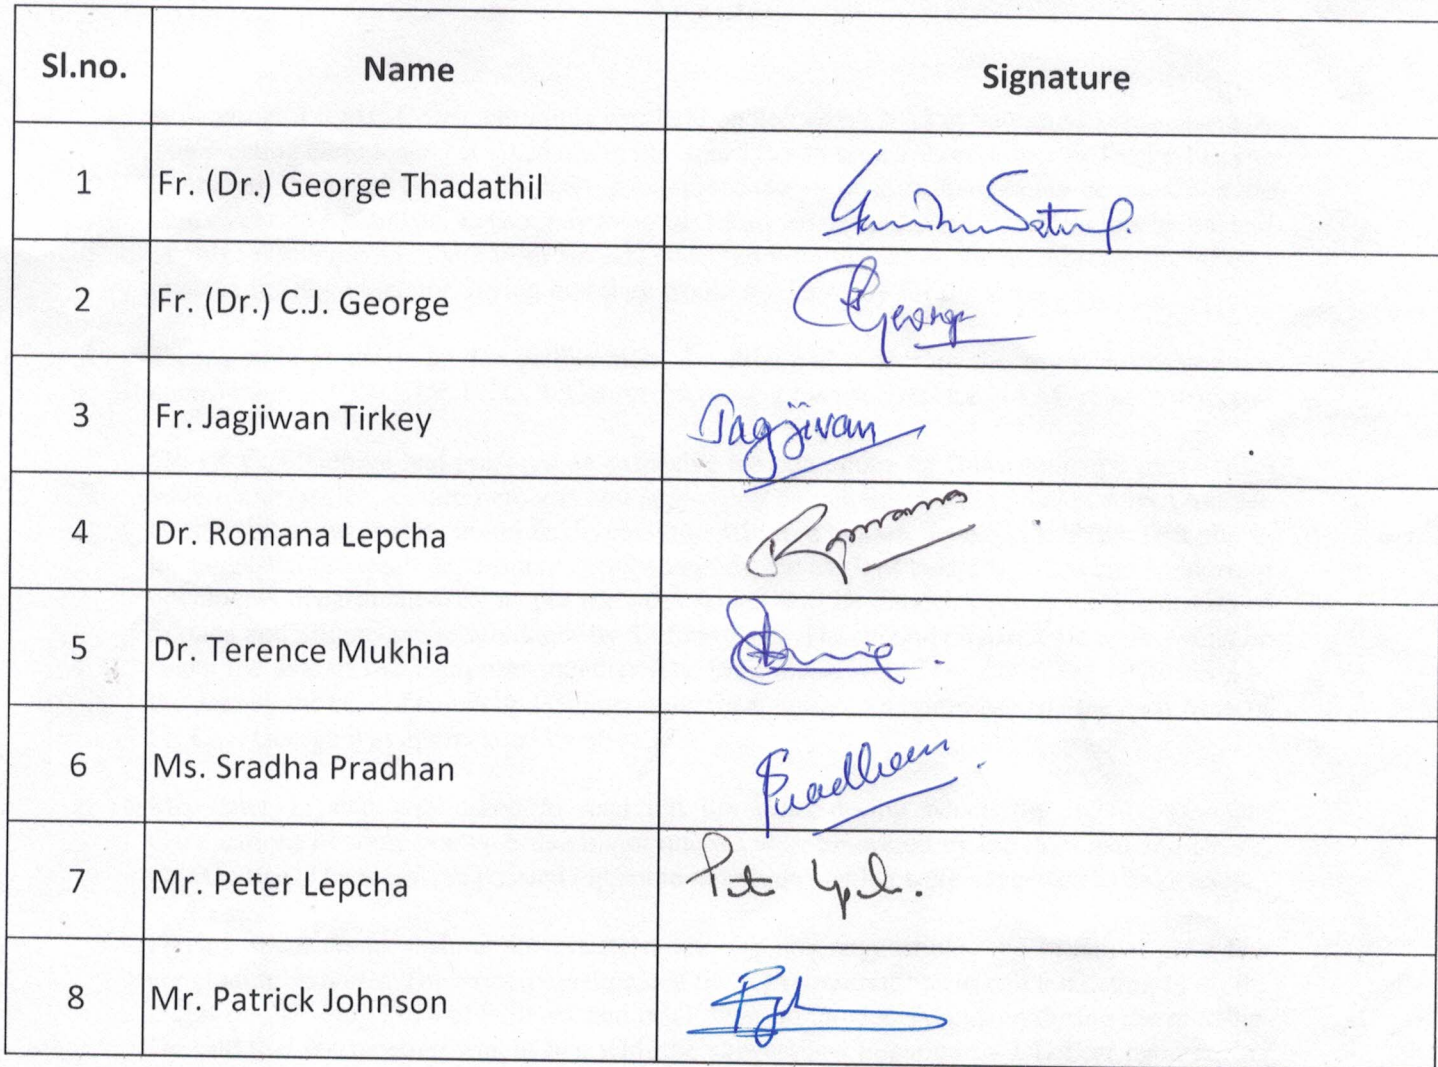 Sl.no. Name Signature
1 Fr. (Dr.) George Thadathil
2 Fr. (Dr.) C.J. George George
3 Fr. Jagjiwan Tirkey Jagjivan
4 Dr. Romana Lepcha Romana
5 Dr. Terence Mukhia
6 Ms. Sradha Pradhan Pradhan
7 Mr. Peter Lepcha
8 Mr. Patrick Johnson